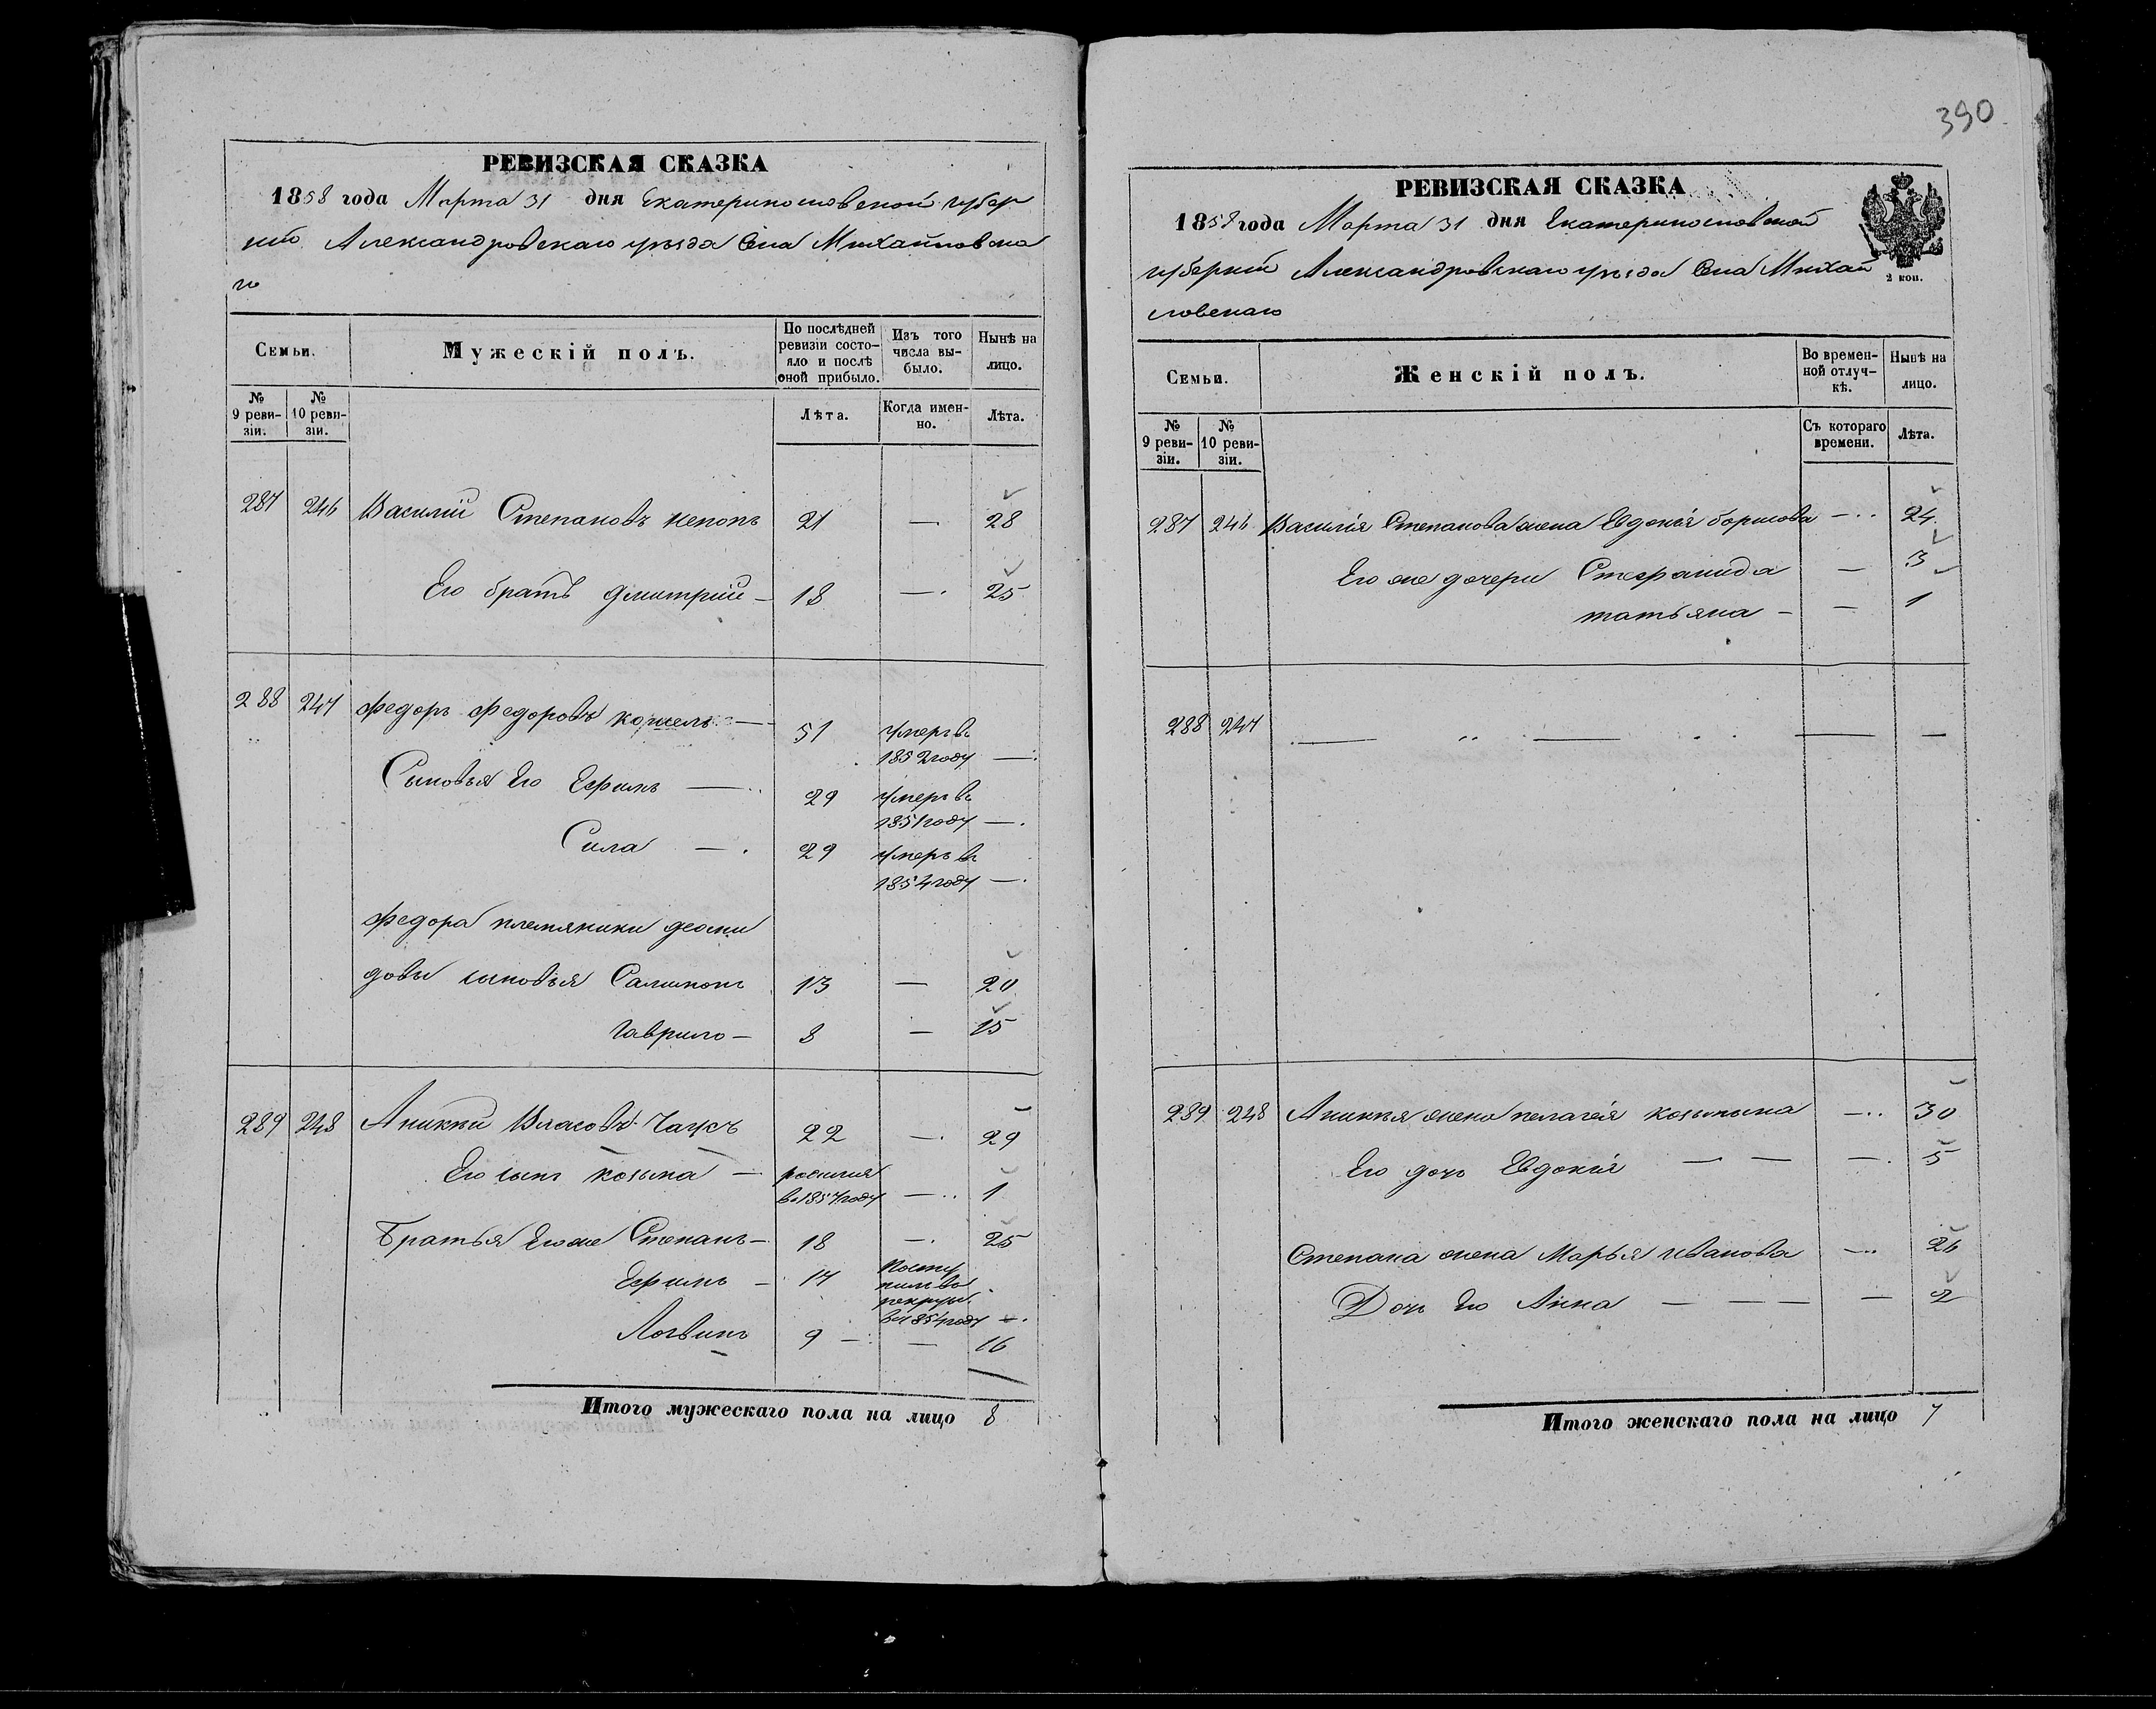 390
РЕВИЗСКАЯ СКАЗКА
1858 года Марта 31 дня Екатеринославской губер
нии Александровскаго уезда Села Михайловска
го
Семьи.
Мужескій полъ.
По послѣдней ревизіи состояло и послѣ оной прибыло.
Изъ того числа выбыло.
Нынѣ на лицо.
№ 9 ревизіи.
№ 10 ревизіи.
Лѣта.
Когда именно.
Лѣта.
287 246 Василий Степановъ 21 — 28
Его братъ Дмитрий — 18 — 25
288 247 Федоръ Федоровъ — 51 умеръ в
1852 году —
Сыновья Его Ефимъ — 29 умеръ в
1851 году —
Сила — 29 умеръ в
1854 году —
Федора племянники
довы сыновья 13 — 20
Гаврило — 8 — 15
289 248 Аникий Власовъ 22 — 29
Его сынъ Козьма —
в 1857 году — 1
Братья Егоже Степанъ — 18 — 25
Ефимъ — 17 Посту
пилъ во
рекруты
в 1854 году —
Логвинъ 9 — — 16
Итого мужескаго пола на лицо 8
РЕВИЗСКАЯ СКАЗКА
1858 года Марта 31 дня Екатеринославской
губерній Александровскаго уезда Села Михай
ловскаго
2 коп.
Семьи.
Женскій полъ.
Во временной отлучкѣ.
Нынѣ на лицо.
№ 9 ревизіи.
№ 10 ревизіи.
Съ котораго времени.
Лѣта.
287 246 Василія Степанова жена Евдокія Борисова — 24
Его же дочери Стефанида — 3
татьяна — — 1
288 247 — — — —
289 248 Аникия жена пелагея козьмина — 30
Его дочь Евдокія — — — 5
Степана жена Марья Иванова — 26
Дочь Его Анна — — — — 2
Итого женскаго пола на лицо 7